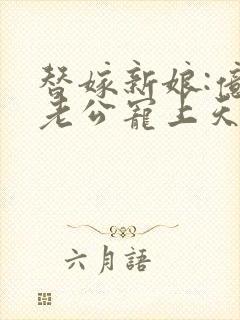 替嫁新娘:億
老公寵上天
六月語